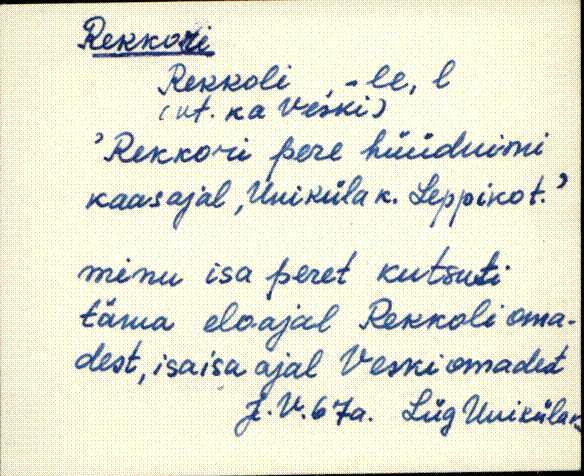 Rekkori
Rekkoli, -le, l
(vt. ka Veski)
'Rekkori pere hüüdnimi
kaasajal, Uniküla k. Leppiko t.'
minu isa peret kutsuti
täma eloajal Rekkoli oma-
dest, isaisa ajal Veski omadest
J. V. 67a. Lüg Uniküla k.